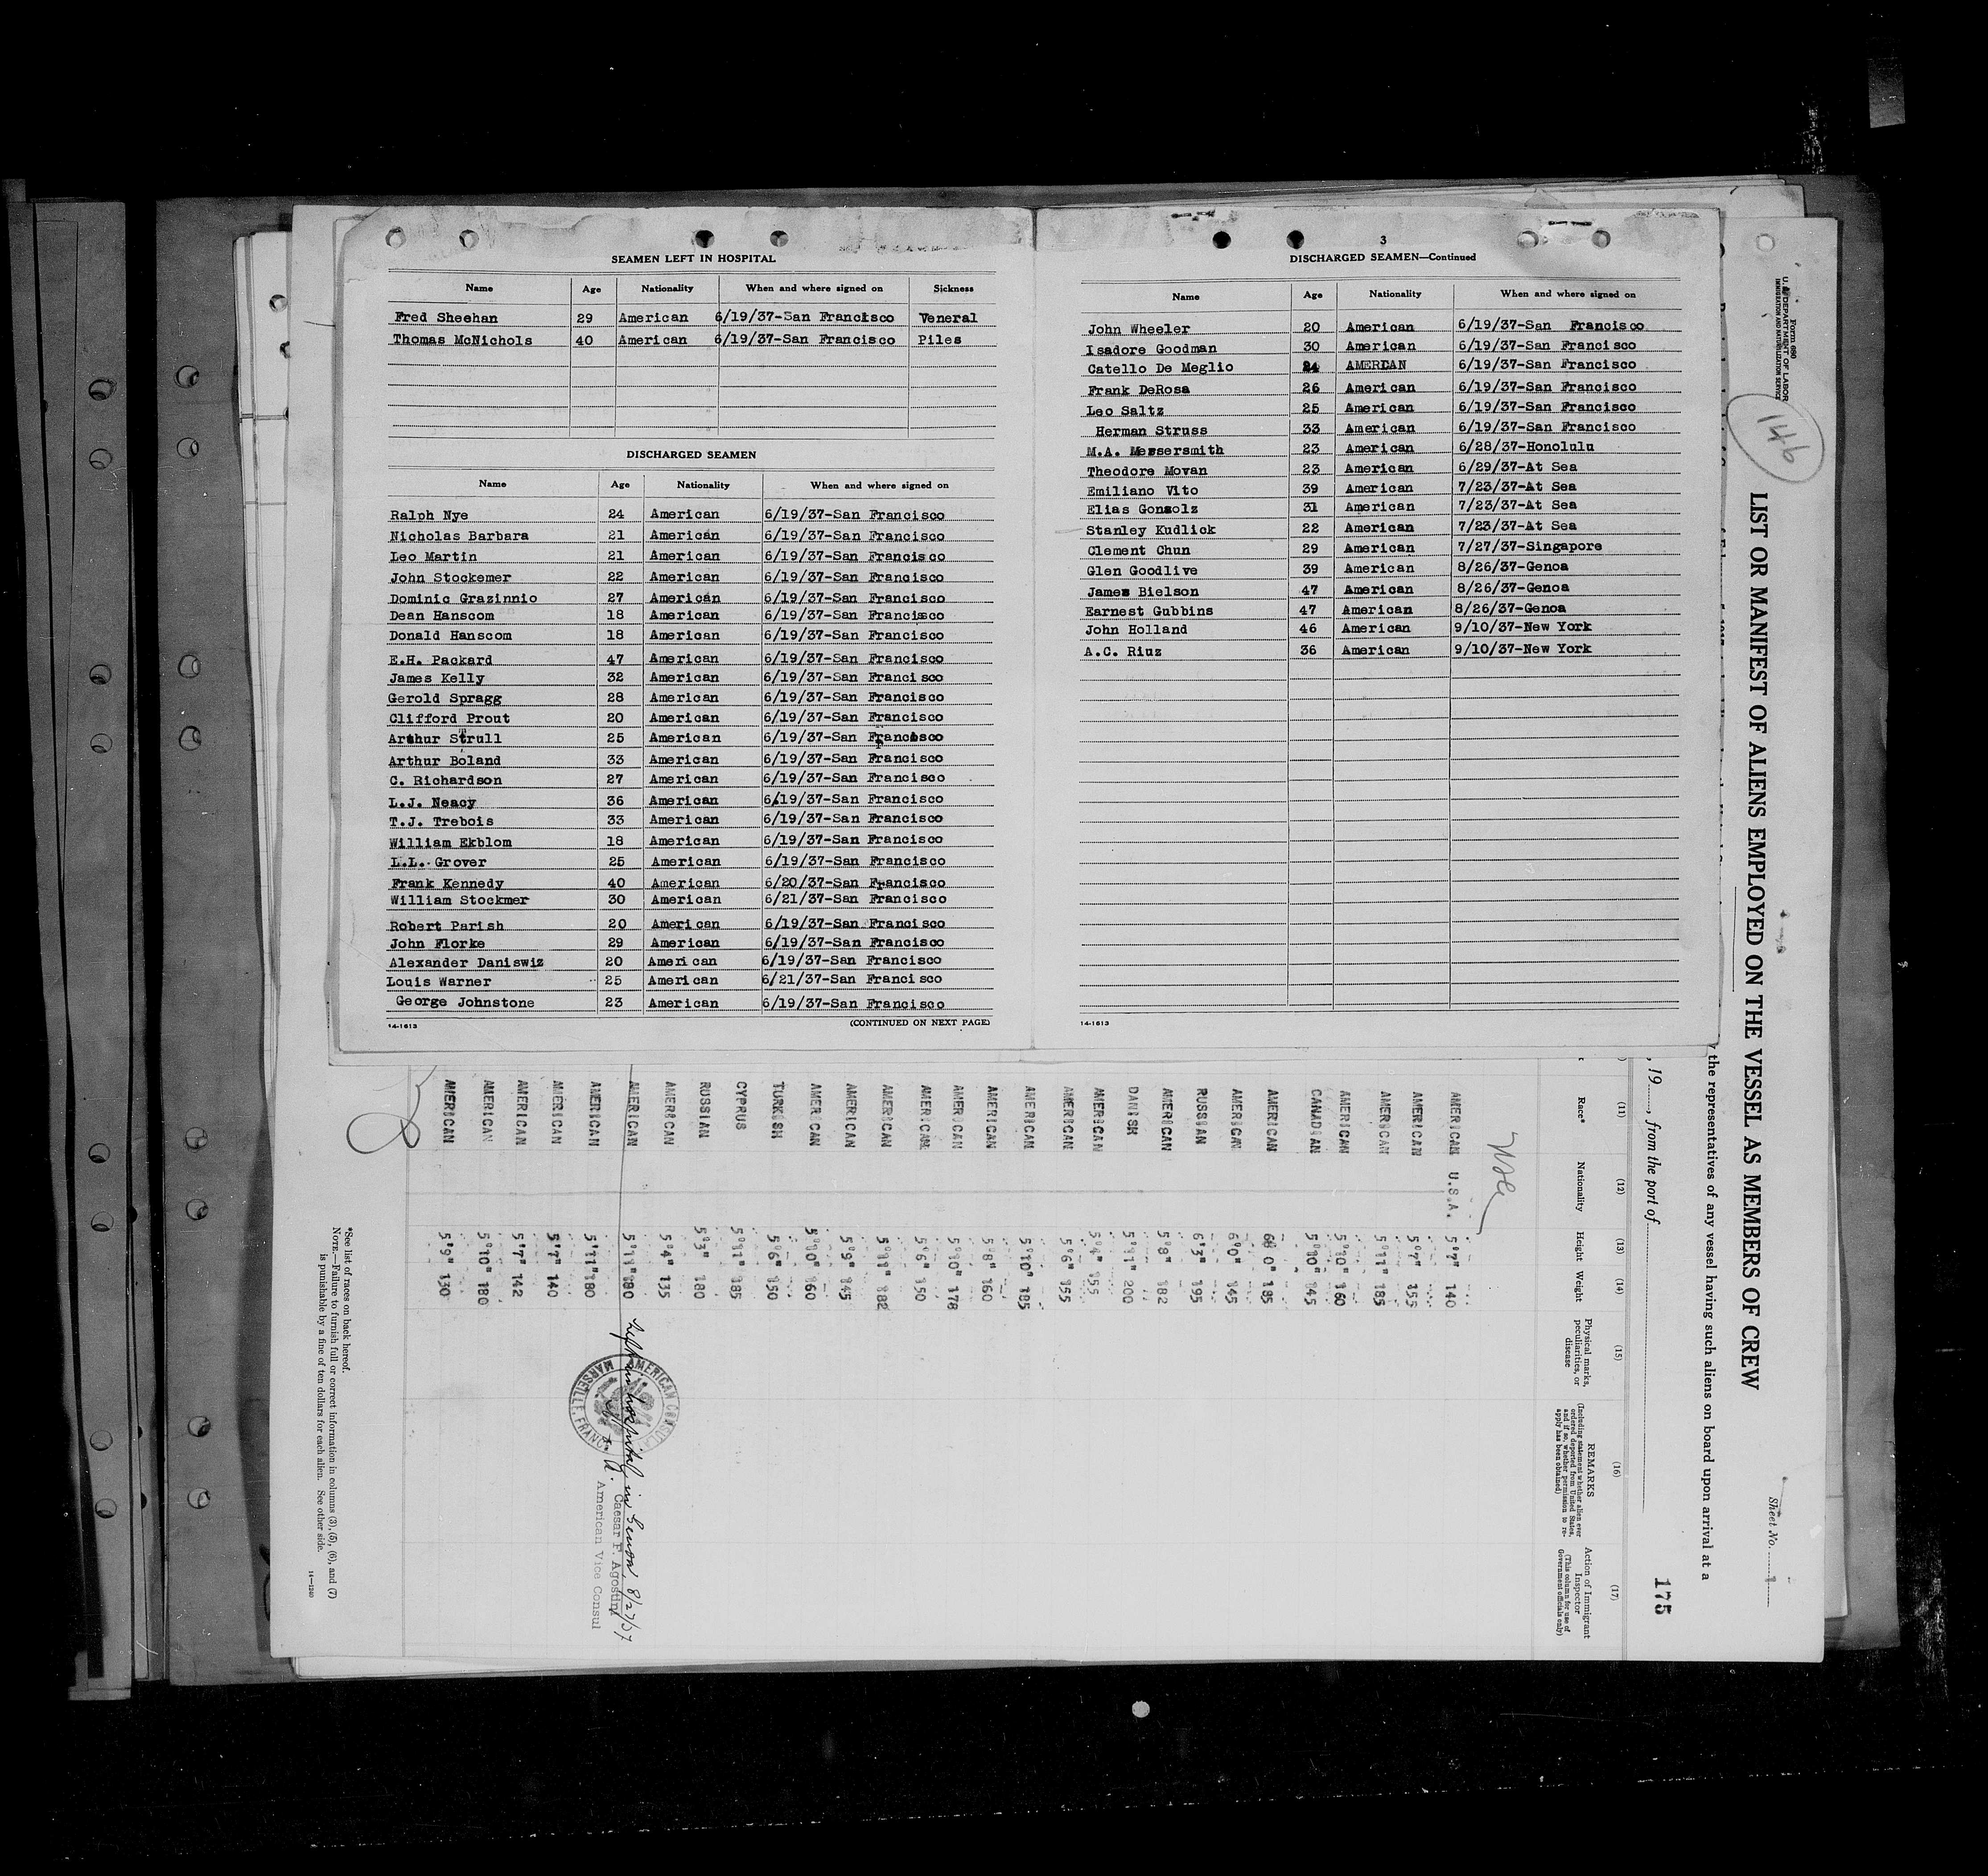 SEAMEN LEFT IN HOSPITAL
Name Age Nationality When and where signed on Sickness
Fred Sheehan 29 American 6/19/37-San Francisco Veneral
Thomas McNichols 40 American 6/19/37-San Francisco Piles
DISCHARGED SEAMEN
Name Age Nationality When and where signed on
Ralph Nye 24 American 6/19/37-San Francisco
Nicholas Barbara 21 American 6/19/37-San Francisco
Leo Martin 21 American 6/19/37-San Francisco
John Stockemer 22 American 6/19/37-San Francisco
Dominic Grazinnio 27 American 6/19/37-San Francisco
Dean Hanscom 18 American 6/19/37-San Francisco
Donald Hanscom 18 American 6/19/37-San Francisco
E.H. Packard 47 American 6/19/37-San Francisco
James Kelly 32 American 6/19/37-San Francisco
Gerold Spragg 28 American 6/19/37-San Francisco
Clifford Prout 20 American 6/19/37-San Francisco
Arthur Strull 25 American 6/19/37-San Francisco
Arthur Boland 33 American 6/19/37-San Francisco
C. Richardson 27 American 6/19/37-San Francisco
L.J. Neacy 36 American 6/19/37-San Francisco
T.J. Trebois 33 American 6/19/37-San Francisco
William Ekblom 18 American 6/19/37-San Francisco
L.L. Grover 25 American 6/19/37-San Francisco
Frank Kennedy 40 American 6/20/37-San Francisco
William Stockmer 30 American 6/21/37-San Francisco
Robert Parish 20 American 6/19/37-San Francisco
John Florke 29 American 6/19/37-San Francisco
Alexander Daniswiz 20 American 6/19/37-San Francisco
Louis Warner 25 American 6/21/37-San Francisco
George Johnstone 23 American 6/19/37-San Francisco
14-1613 (CONTINUED ON NEXT PAGE)
3
DISCHARGED SEAMEN—Continued
Name Age Nationality When and where signed on
John Wheeler 20 American 6/19/37-San Francisco
Isadore Goodman 30 American 6/19/37-San Francisco
Catello De Meglio 24 AMERICAN 6/19/37-San Francisco
Frank DeRosa 26 American 6/19/37-San Francisco
Leo Saltz 25 American 6/19/37-San Francisco
Herman Struss 33 American 6/19/37-San Francisco
M.A. Messersmith 23 American 6/28/37-Honolulu
Theodore Movan 23 American 6/29/37-At Sea
Emiliano Vito 39 American 7/23/37-At Sea
Elias Gonzolz 31 American 7/23/37-At Sea
Stanley Kudlick 22 American 7/23/37-At Sea
Clement Chun 29 American 7/27/37-Singapore
Glen Goodlive 39 American 8/26/37-Genoa
James Bielson 47 American 8/26/37-Genoa
Earnest Gubbins 47 American 8/26/37-Genoa
John Holland 46 American 9/10/37-New York
A.C. Riuz 36 American 9/10/37-New York
14-1613
Form 680
U. S. DEPARTMENT OF LABOR
IMMIGRATION AND NATURALIZATION SERVICE
146
LIST OR MANIFEST OF ALIENS EMPLOYED ON THE VESSEL AS MEMBERS OF CREW
Sheet No. 1
the representatives of any vessel having such aliens on board upon arrival at a
, 19 , from the port of
175
(11) (12) (13) (14) (15) (16) (17)
Race* Nationality Height Weight
Physical marks, peculiarities, or disease
REMARKS
(Including statement whether alien ever ordered deported from United States, and if so, whether permission to re-apply has been obtained)
Action of Immigrant Inspector
(This column for use of Government officials only)
AMERICAN U.S.A. 5'7" 140
AMERICAN 5'7" 155
AMERICAN 5'11" 185
AMERICAN 5'10" 160
CANADIAN 5'10" 145
AMERICAN 6'0" 185
AMERICAN 6'0" 145
RUSSIAN 6'3" 195
AMERICAN 5'8" 182
DANISH 5'11" 200
AMERICAN 5'4" 155
AMERICAN 5'6" 155
AMERICAN 5'10" 185
AMERICAN 5'8" 160
AMERICAN 5'10" 178
AMERICAN 5'6" 150
AMERICAN 5'11" 182
AMERICAN 5'9" 145
AMERICAN 5'10" 160
TURKISH 5'6" 150
CYPRUS 5'11" 185
RUSSIAN 5'3" 180
AMERICAN 5'4" 135
AMERICAN 5'11" 180 Left in hospital in Genoa 8/27/37
AMERICAN 5'11" 180
AMERICAN 5'7" 140
AMERICAN 5'7" 142
AMERICAN 5'10" 180
AMERICAN 5'9" 130
AMERICAN CONSULA
MARSEILLE, FRANC
Caesar F. Agostini
American Vice Consul
*See list of races on back hereof.
NOTE.—Failure to furnish full or correct information in columns (3), (5), (6), and (7)
is punishable by a fine of ten dollars for each alien. See other side.
14—1240